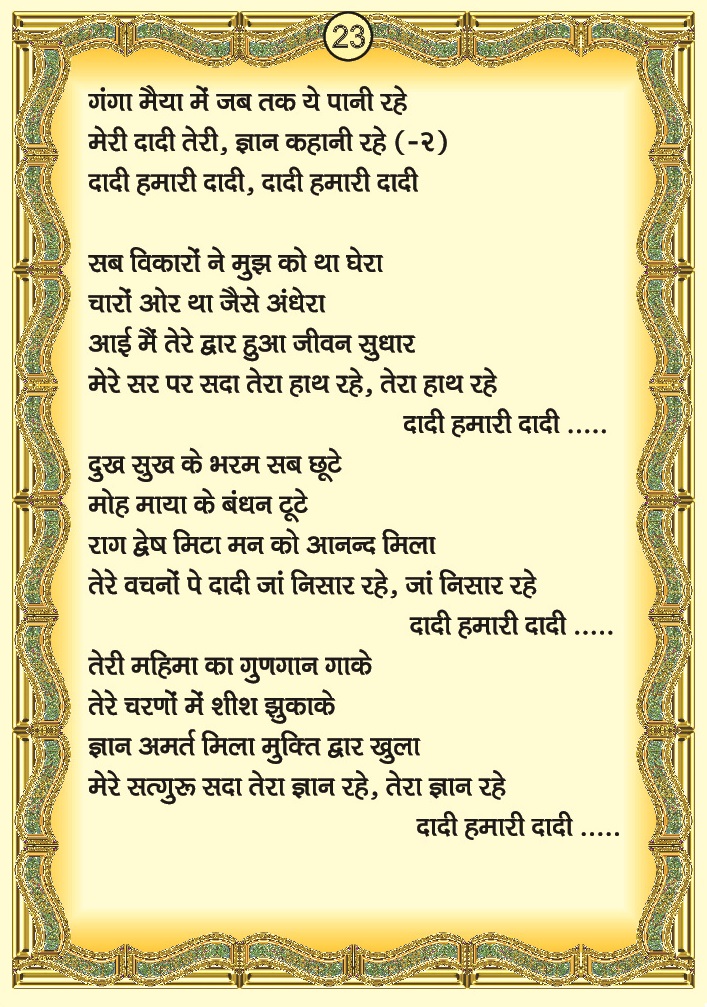 23
गंगा मैया में जब तक ये पानी रहे
मेरी दादी तेरी, ज्ञान कहानी रहे (-२)
दादी हमारी दादी, दादी हमारी दादी
सब विकारों ने मुझ को था घेरा
चारों ओर था जैसे अंधेरा
आई मैं तेरे द्वार हुआ जीवन सुधार
मेरे सर पर सदा तेरा हाथ रहे, तेरा हाथ रहे
दादी हमारी दादी .....
दुख सुख के भरम सब छूटे
मोह माया के बंधन टूटे
राग द्वेष मिटा मन को आनन्द मिला
तेरे वचनों पे दादी जां निसार रहे, जां निसार रहे
दादी हमारी दादी .....
तेरी महिमा का गुणगान गाके
तेरे चरणों में शीश झुकाके
ज्ञान अमर्त मिला मुक्ति द्वार खुला
मेरे सत्गुरू सदा तेरा ज्ञान रहे, तेरा ज्ञान रहे
दादी हमारी दादी .....